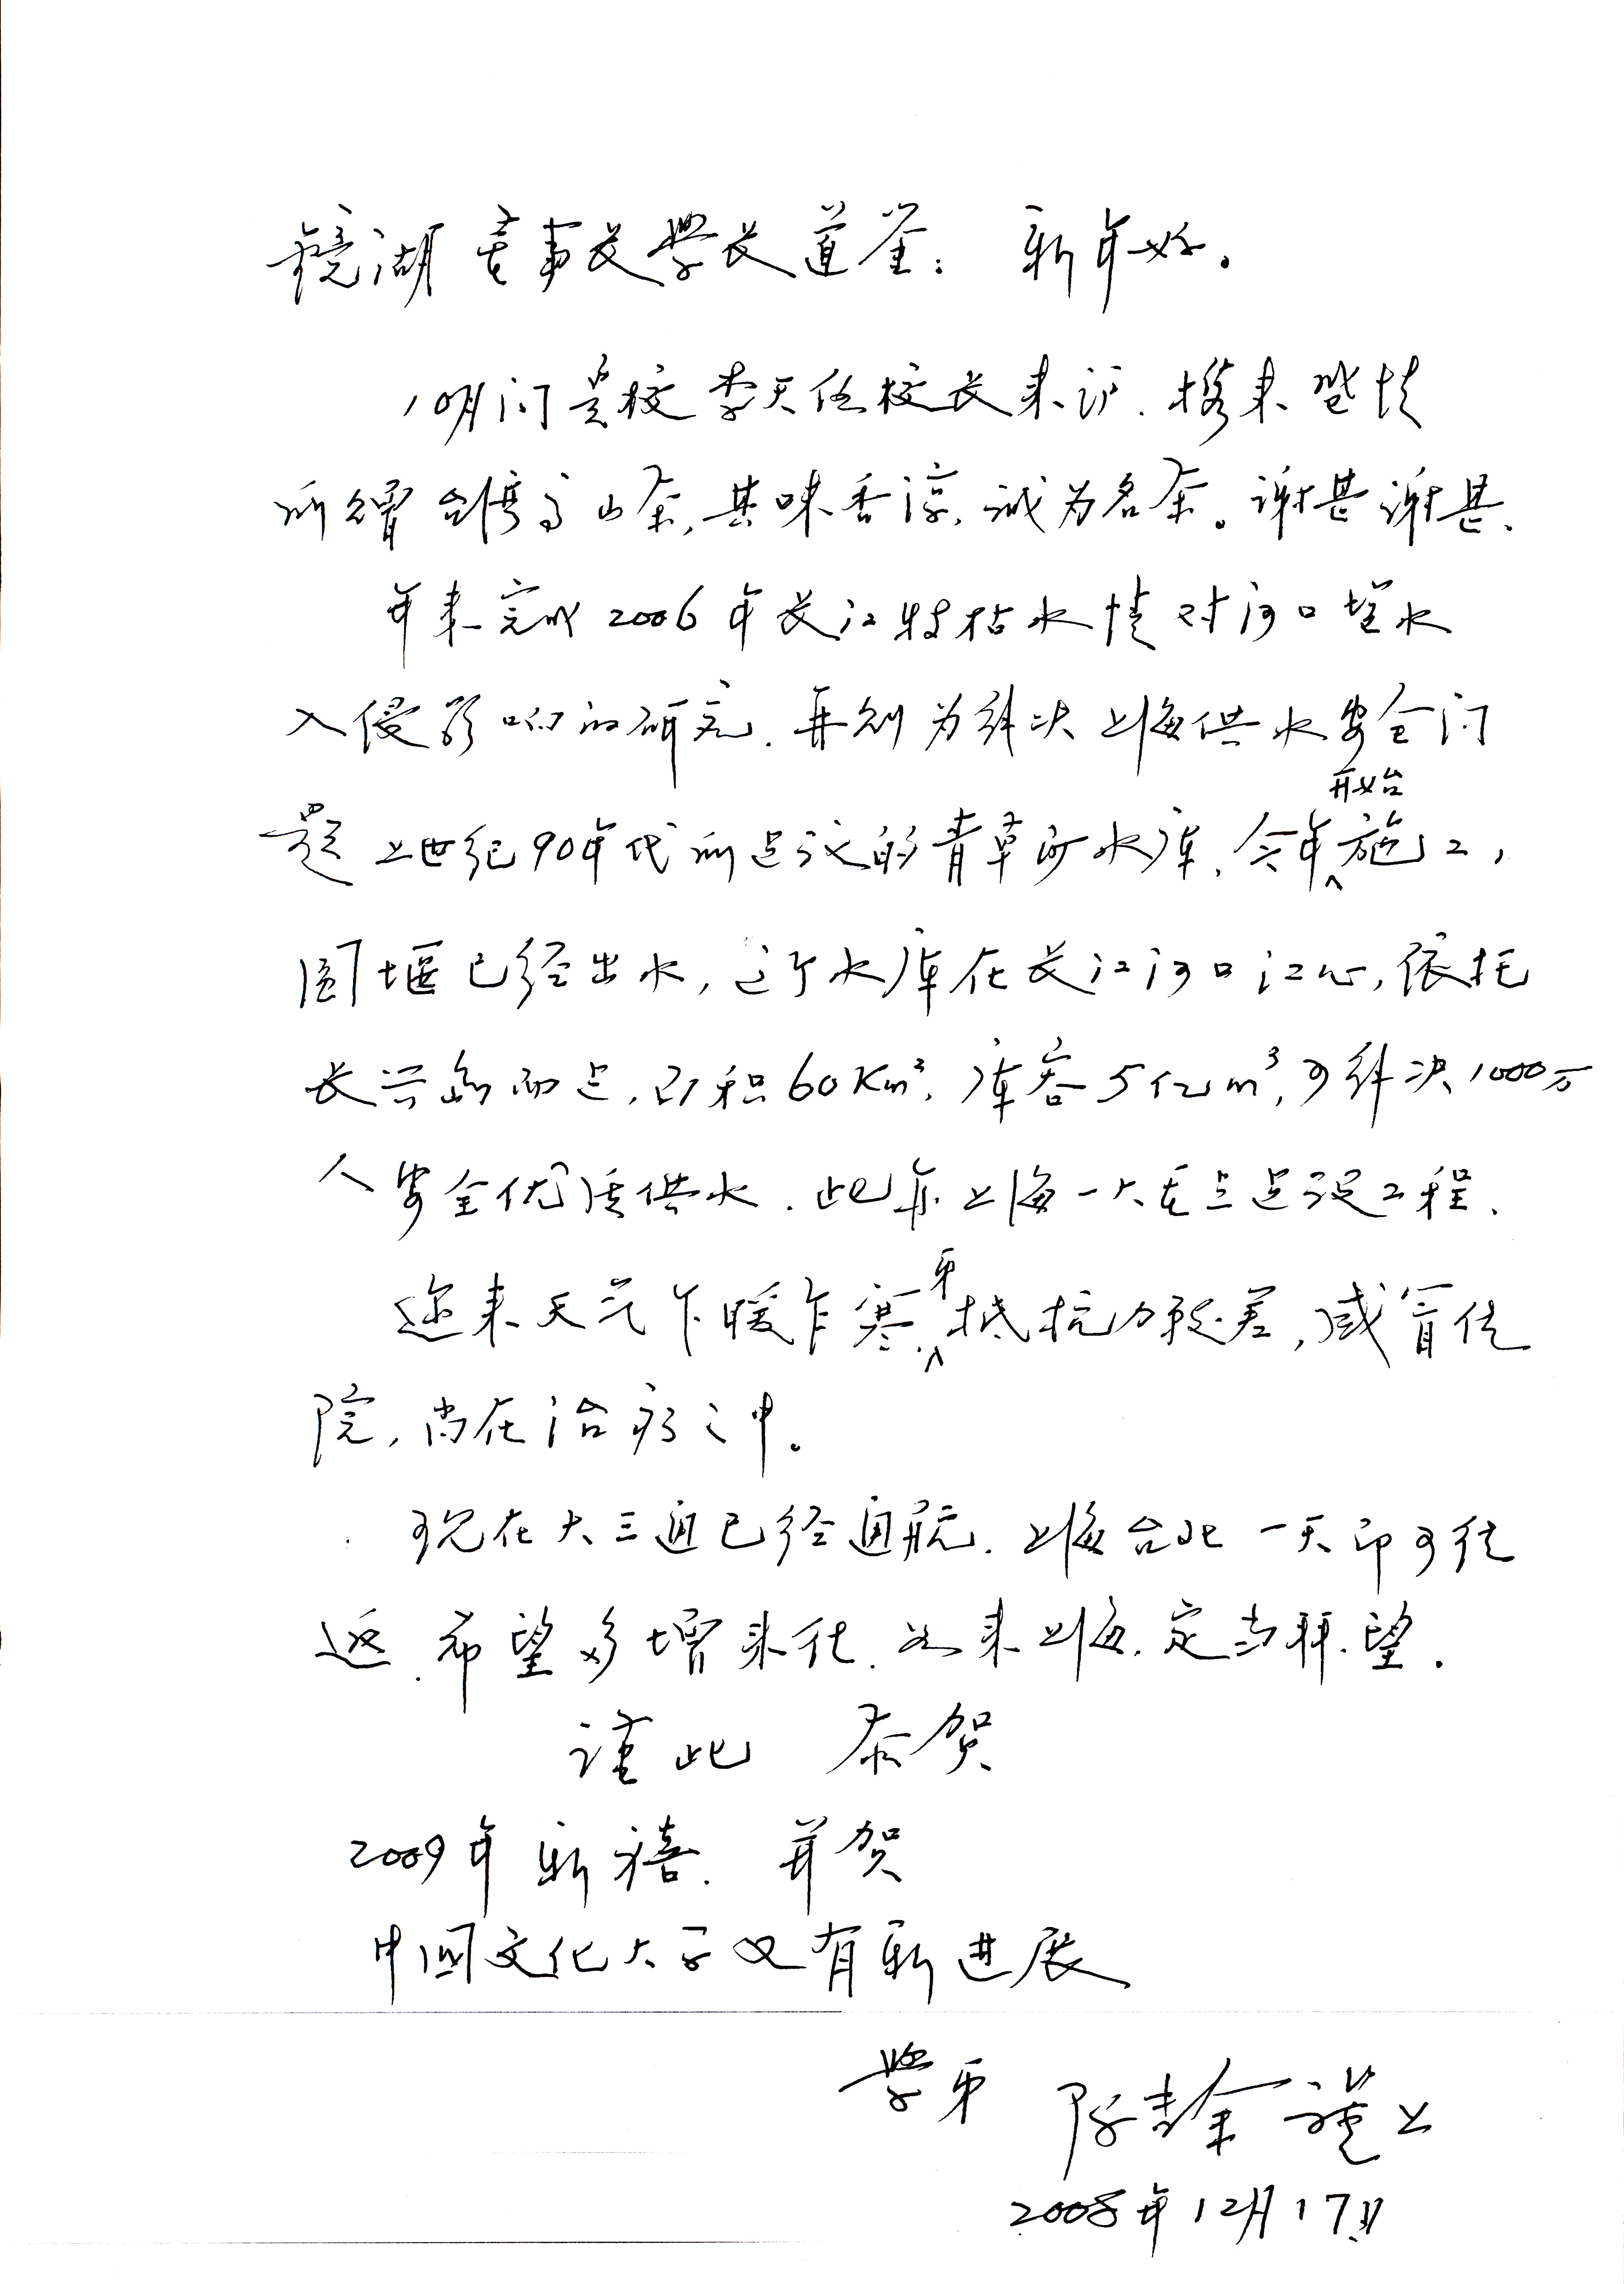 镜湖董事长學长道鉴：新年好。
10月间贵校李天任校长来沪．携来 盛情
所贈台湾高山茶，其味香淳，诚为名茶。谢甚谢甚．
年来完成2006年长江特枯水情对河口塩水
入侵影响的研究．并刻为解决上海供水安全问
题上世纪90年代所建议的青草沙水库．今年开始施工，
围堰已经出水，这个水库在长江河口江心，依托
长兴岛而建，面积60Km²，库容5亿m³，可解决1000万
人安全优质供水．此乃上海一大重点建设工程．
迩来天气乍暖乍寒．弟抵抗力较差，感冒住
院，尚在治疗之中。
现在大三通已经通航．上海台北一天即可往
返．希望多增来往．如来上海．定当拜望．
谨此 恭贺
2009年新禧． 并贺
中國文化大学又有新进展
學弟 陈吉余 谨上
2008年12月17日